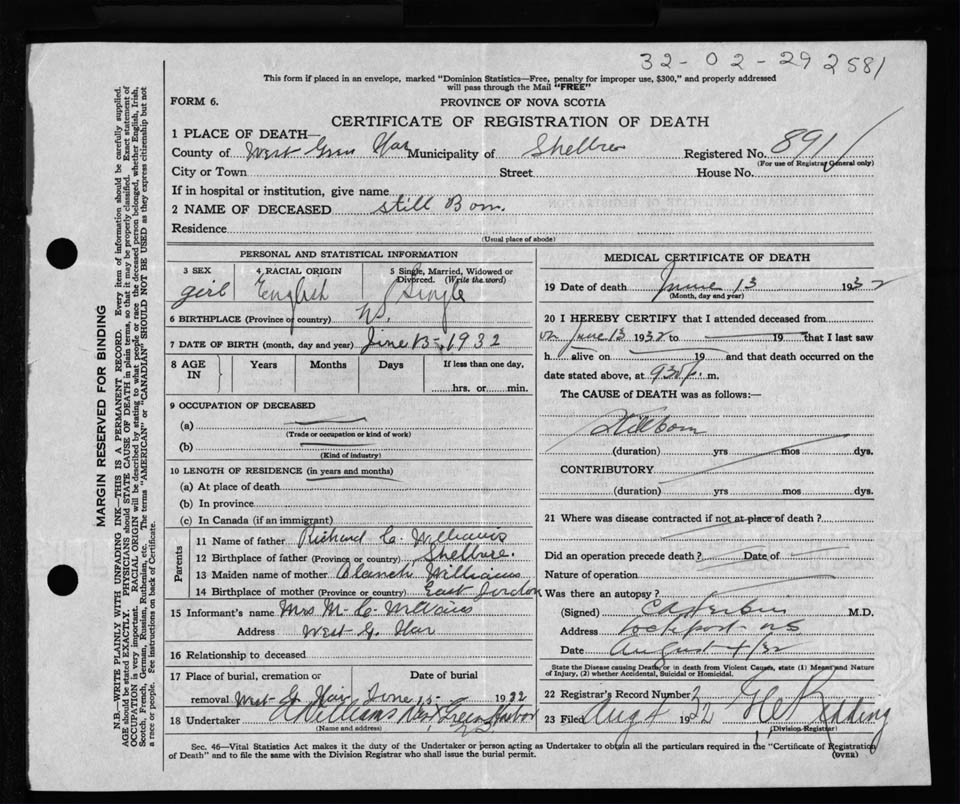 32-02-29 2581
This form if placed in an envelope, marked "Dominion Statistics—Free, penalty for improper use, $300," and properly addressed
will pass through the Mail "FREE"
FORM 6.
PROVINCE OF NOVA SCOTIA
CERTIFICATE OF REGISTRATION OF DEATH
1 PLACE OF DEATH—
County of West Green Har Municipality of Shelbrne Registered No. 891
(For use of Registrar General only)
City or Town Street House No.
If in hospital or institution, give name
2 NAME OF DECEASED Still Born.
Residence
(Usual place of abode)
PERSONAL AND STATISTICAL INFORMATION
3 SEX 4 RACIAL ORIGIN 5 Single, Married, Widowed or Divorced. (Write the word)
girl English Single
6 BIRTHPLACE (Province or country) N.S.
7 DATE OF BIRTH (month, day and year) June 13, 1932
8 AGE IN Years Months Days If less than one day,
hrs. or min.
9 OCCUPATION OF DECEASED
(a)
(Trade or occupation or kind of work)
(b)
(Kind of industry)
10 LENGTH OF RESIDENCE (in years and months)
(a) At place of death
(b) In province
(c) In Canada (if an immigrant)
Parents
11 Name of father Richard C. Williams
12 Birthplace of father (Province or country) Shelbrne.
13 Maiden name of mother Blanch Williams
14 Birthplace of mother (Province or country) East Jordon
15 Informant's name Mrs M. C. Williams
Address West G. Har
16 Relationship to deceased
17 Place of burial, cremation or Date of burial
removal West G. Har June 15 1932
18 Undertaker A Williams West Green Harbor
(Name and address) N.S.
MEDICAL CERTIFICATE OF DEATH
19 Date of death June 13 1932
(Month, day and year)
20 I HEREBY CERTIFY that I attended deceased from
on June 13 1932 to 19 that I last saw
h alive on 19 and that death occurred on the
date stated above, at 930 p. m.
The CAUSE of DEATH was as follows:—
Stillborn
(duration) yrs mos dys.
CONTRIBUTORY
(duration) yrs mos dys.
21 Where was disease contracted if not at place of death?
Did an operation precede death? Date of
Nature of operation
Was there an autopsy?
(Signed) M.D.
Address Lockport N.S.
Date August 4/32
State the Disease causing Death, or in death from Violent Causes, state (1) Means and Nature
of Injury, (2) whether Accidental, Suicidal or Homicidal.
22 Registrar's Record Number 2
23 Filed Aug 4 1932 Redding
(Division Registrar)
Sec. 46—Vital Statistics Act makes it the duty of the Undertaker or person acting as Undertaker to obtain all the particulars required in the "Certificate of Registration
of Death" and to file the same with the Division Registrar who shall issue the burial permit.
(OVER)
MARGIN RESERVED FOR BINDING
N.B.—WRITE PLAINLY WITH UNFADING INK—THIS IS A PERMANENT RECORD. Every item of information should be carefully supplied.
AGE should be stated EXACTLY. PHYSICIANS should STATE CAUSE OF DEATH in plain terms, so that it may be properly classified. Exact statement of
OCCUPATION is very important. RACIAL ORIGIN will be described by stating to what people or race the deceased person belonged, whether English, Irish,
Scotch, French, German, Russian, Ruthenian, etc. The terms "AMERICAN" or "CANADIAN" SHOULD NOT BE USED as they express citizenship but not
a race or people. See instructions on back of Certificate.